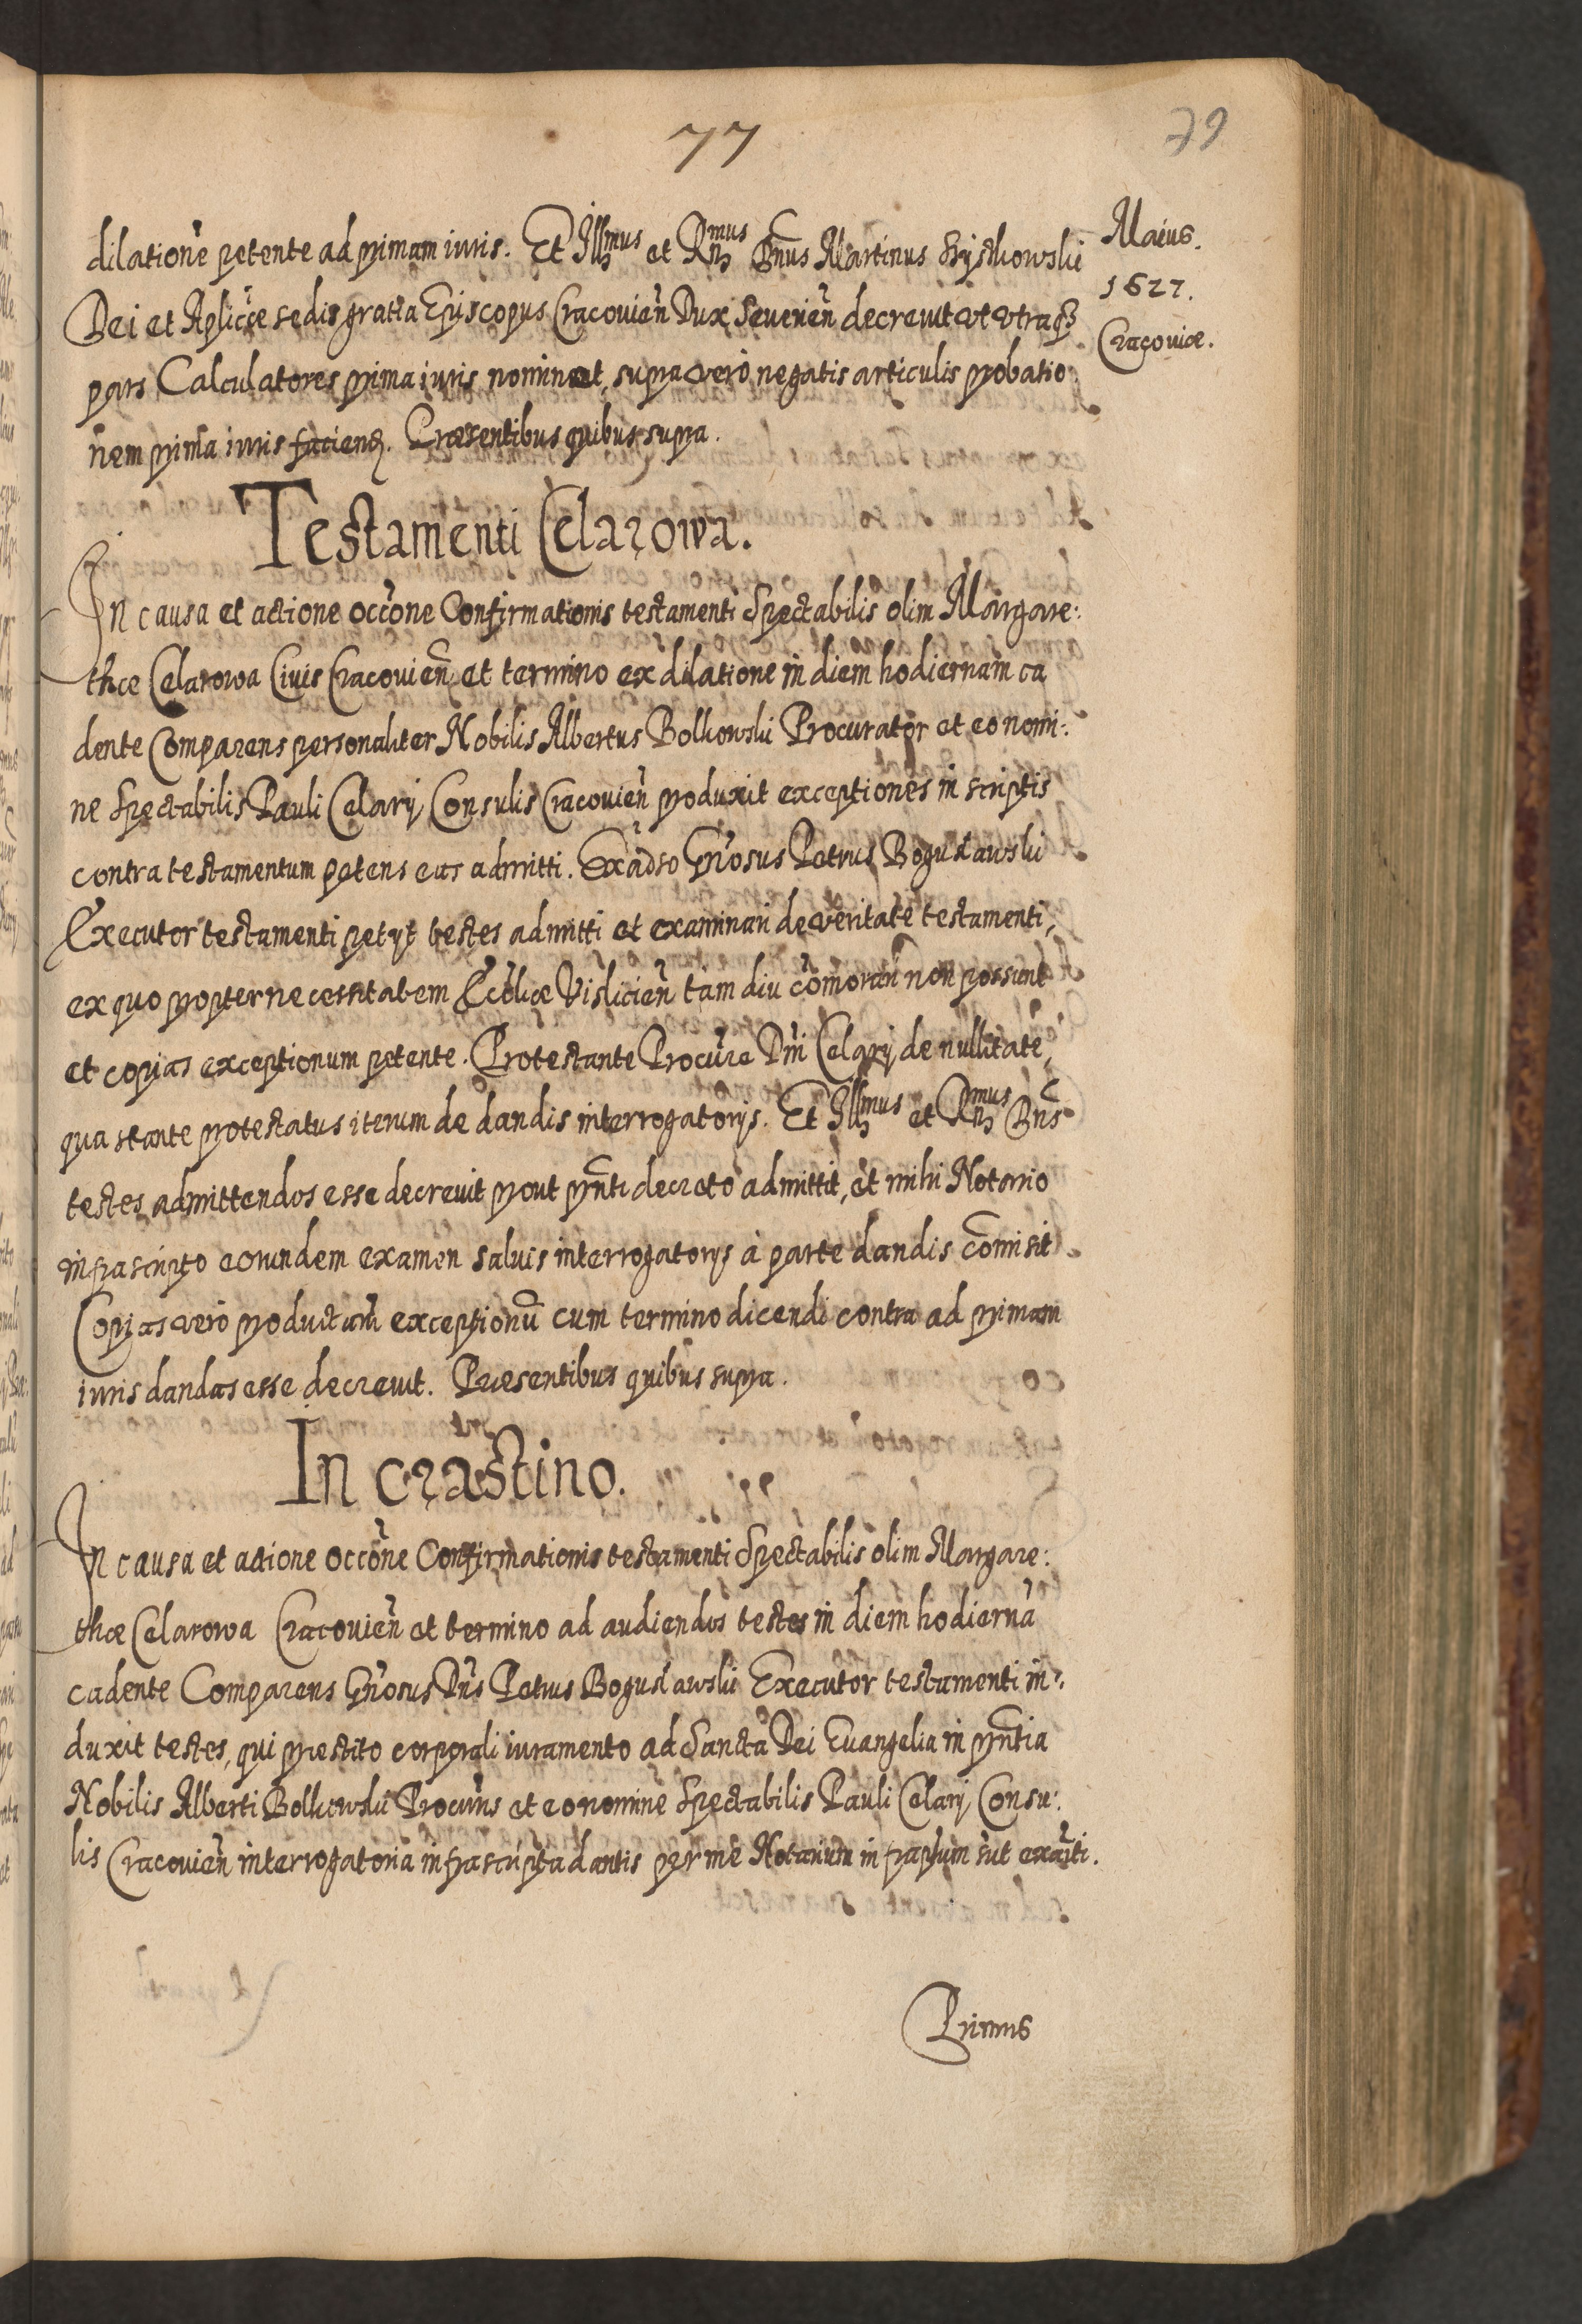 77
79
Maius.
1627.
Cracoviæ.
dilatione petente ad primam iuris. Et Illmus et Rmus Dnus Martinus Szyskowski
Dei et Aplicæ sedis gratia Episcopus Cracovien̄ Dux Severien̄ decrevit vt vtraq3
pars Calculatores prima iuris nominet, supra vero negatis articulis probatio
nem prima iuris faciend. Præsentibus quibus supra.
Testamenti Celarowa.
In causa et actione occōne Confirmationis testamenti Spectabilis olim Margare:
thæ Celarowa Civis Cracovien̄ et termino ex dilatione in diem hodiernam ca
dente Comparens personaliter Nobilis Albertus Bolkowski Procurator et eo nomi:
ne Spectabilis Pauli Celary Consulis Cracovien̄ produxit exceptiones in scriptis
contra testamentum petens eas admitti. Ex adso Gn̄osus Petrus Bogusławski
Executor testamenti petyt testes admitti et examinari de veritate testamenti,
ex quo propter necessitatem Ecclīæ Vislicien̄ tam diu cōmorari non possunt
et copias exceptionum petente. Protestante Procūre Dn̄i Celary de nullitate,
qua stante protestatus iterum de dandis interrogatorys. Et Illmus et Rmus Dn̄s
testes admittendos esse decrevit prout pn̄ti decreto admittit, et mihi Notario
infrascripto eorundem examen salvis interrogatorys à parte dandis cōmisit
Copias vero productarū exceptionū cum termino dicendi contra ad primam
iuris dandas esse decrevit. Præsentibus quibus supra.
In crastino.
In causa et actione occōne Confirmationis testamenti Spectabilis olim Margare:
thæ Celarowa Cracovien̄ et termino ad audiendos testes in diem hodiernā
cadente Comparens Gn̄osus Dn̄s Petrus Bogusławski Executor testamenti in:
duxit testes, qui præstito corporali iuramento ad Sancta Dei Evangelia in pn̄tia
Nobilis Alberti Bolkowski Procurīs et eo nomine Spectabilis Pauli Celary Consu:
lis Cracovien̄ interrogatoria infrascripta dantis per me Notarium infraptum sūt exaīti.
Primus